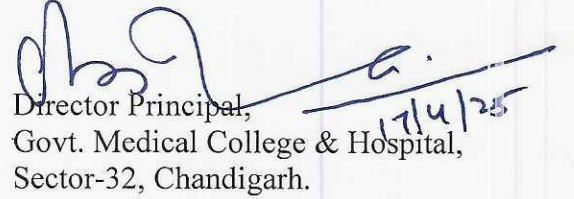 Director Principal,
17/4/25
Govt. Medical College & Hospital,
Sector-32, Chandigarh.